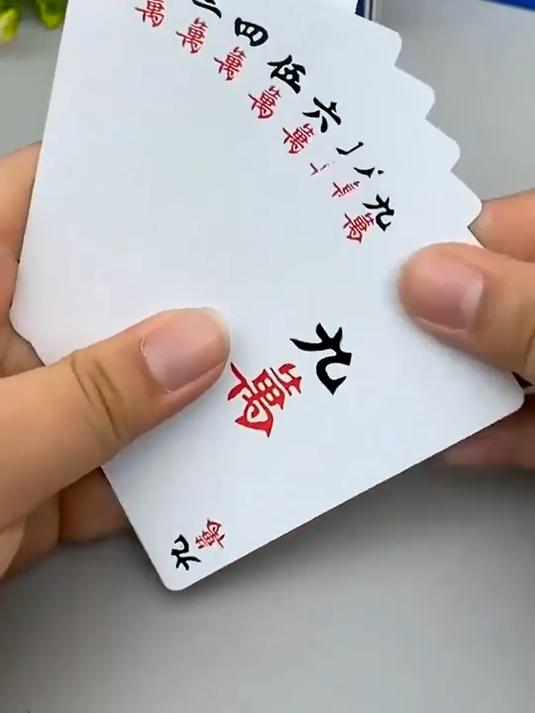 萬
萬
四萬
伍萬
六萬
萬
九萬
九萬
九萬